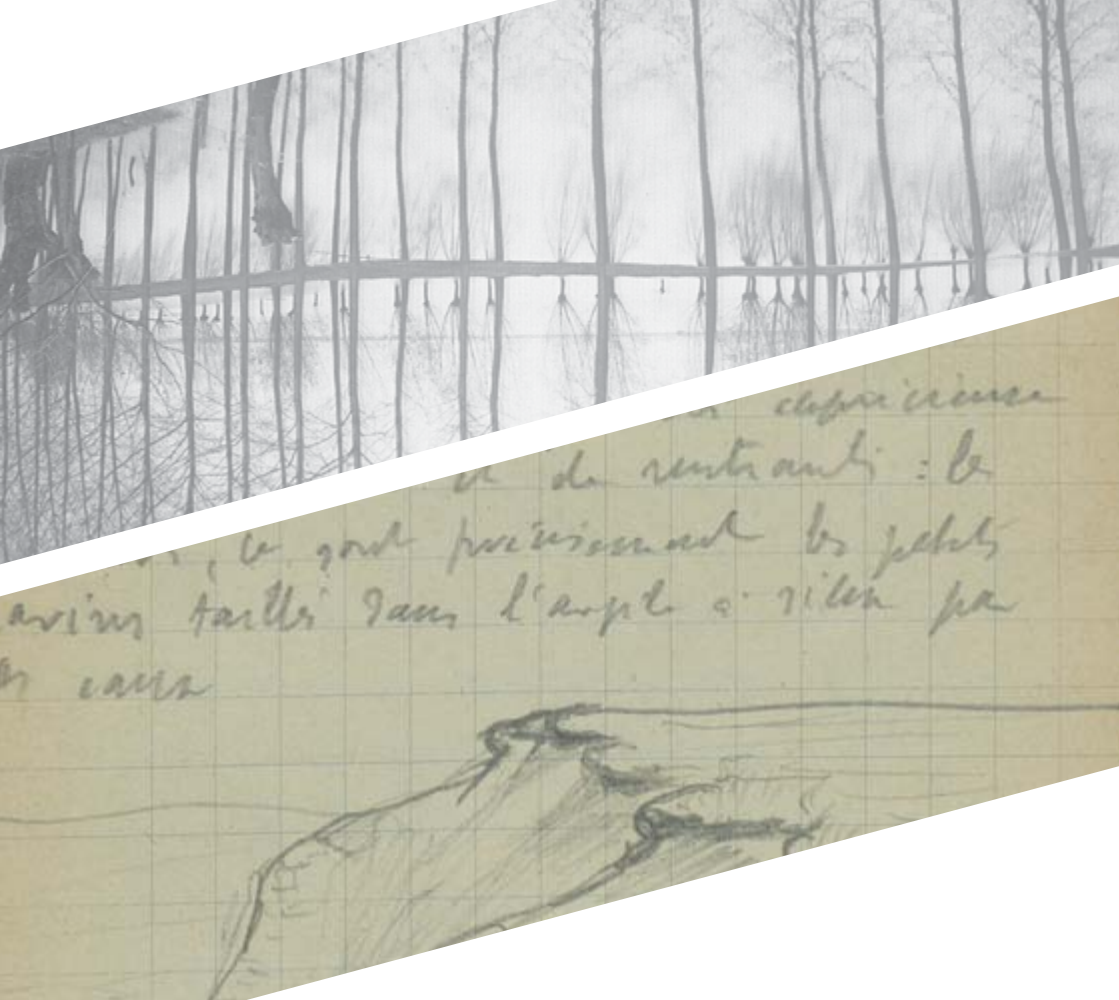 et de rentrants : le
, ce sont précisément les petits
ravins taillés dans l'argile à silex par
les eaux